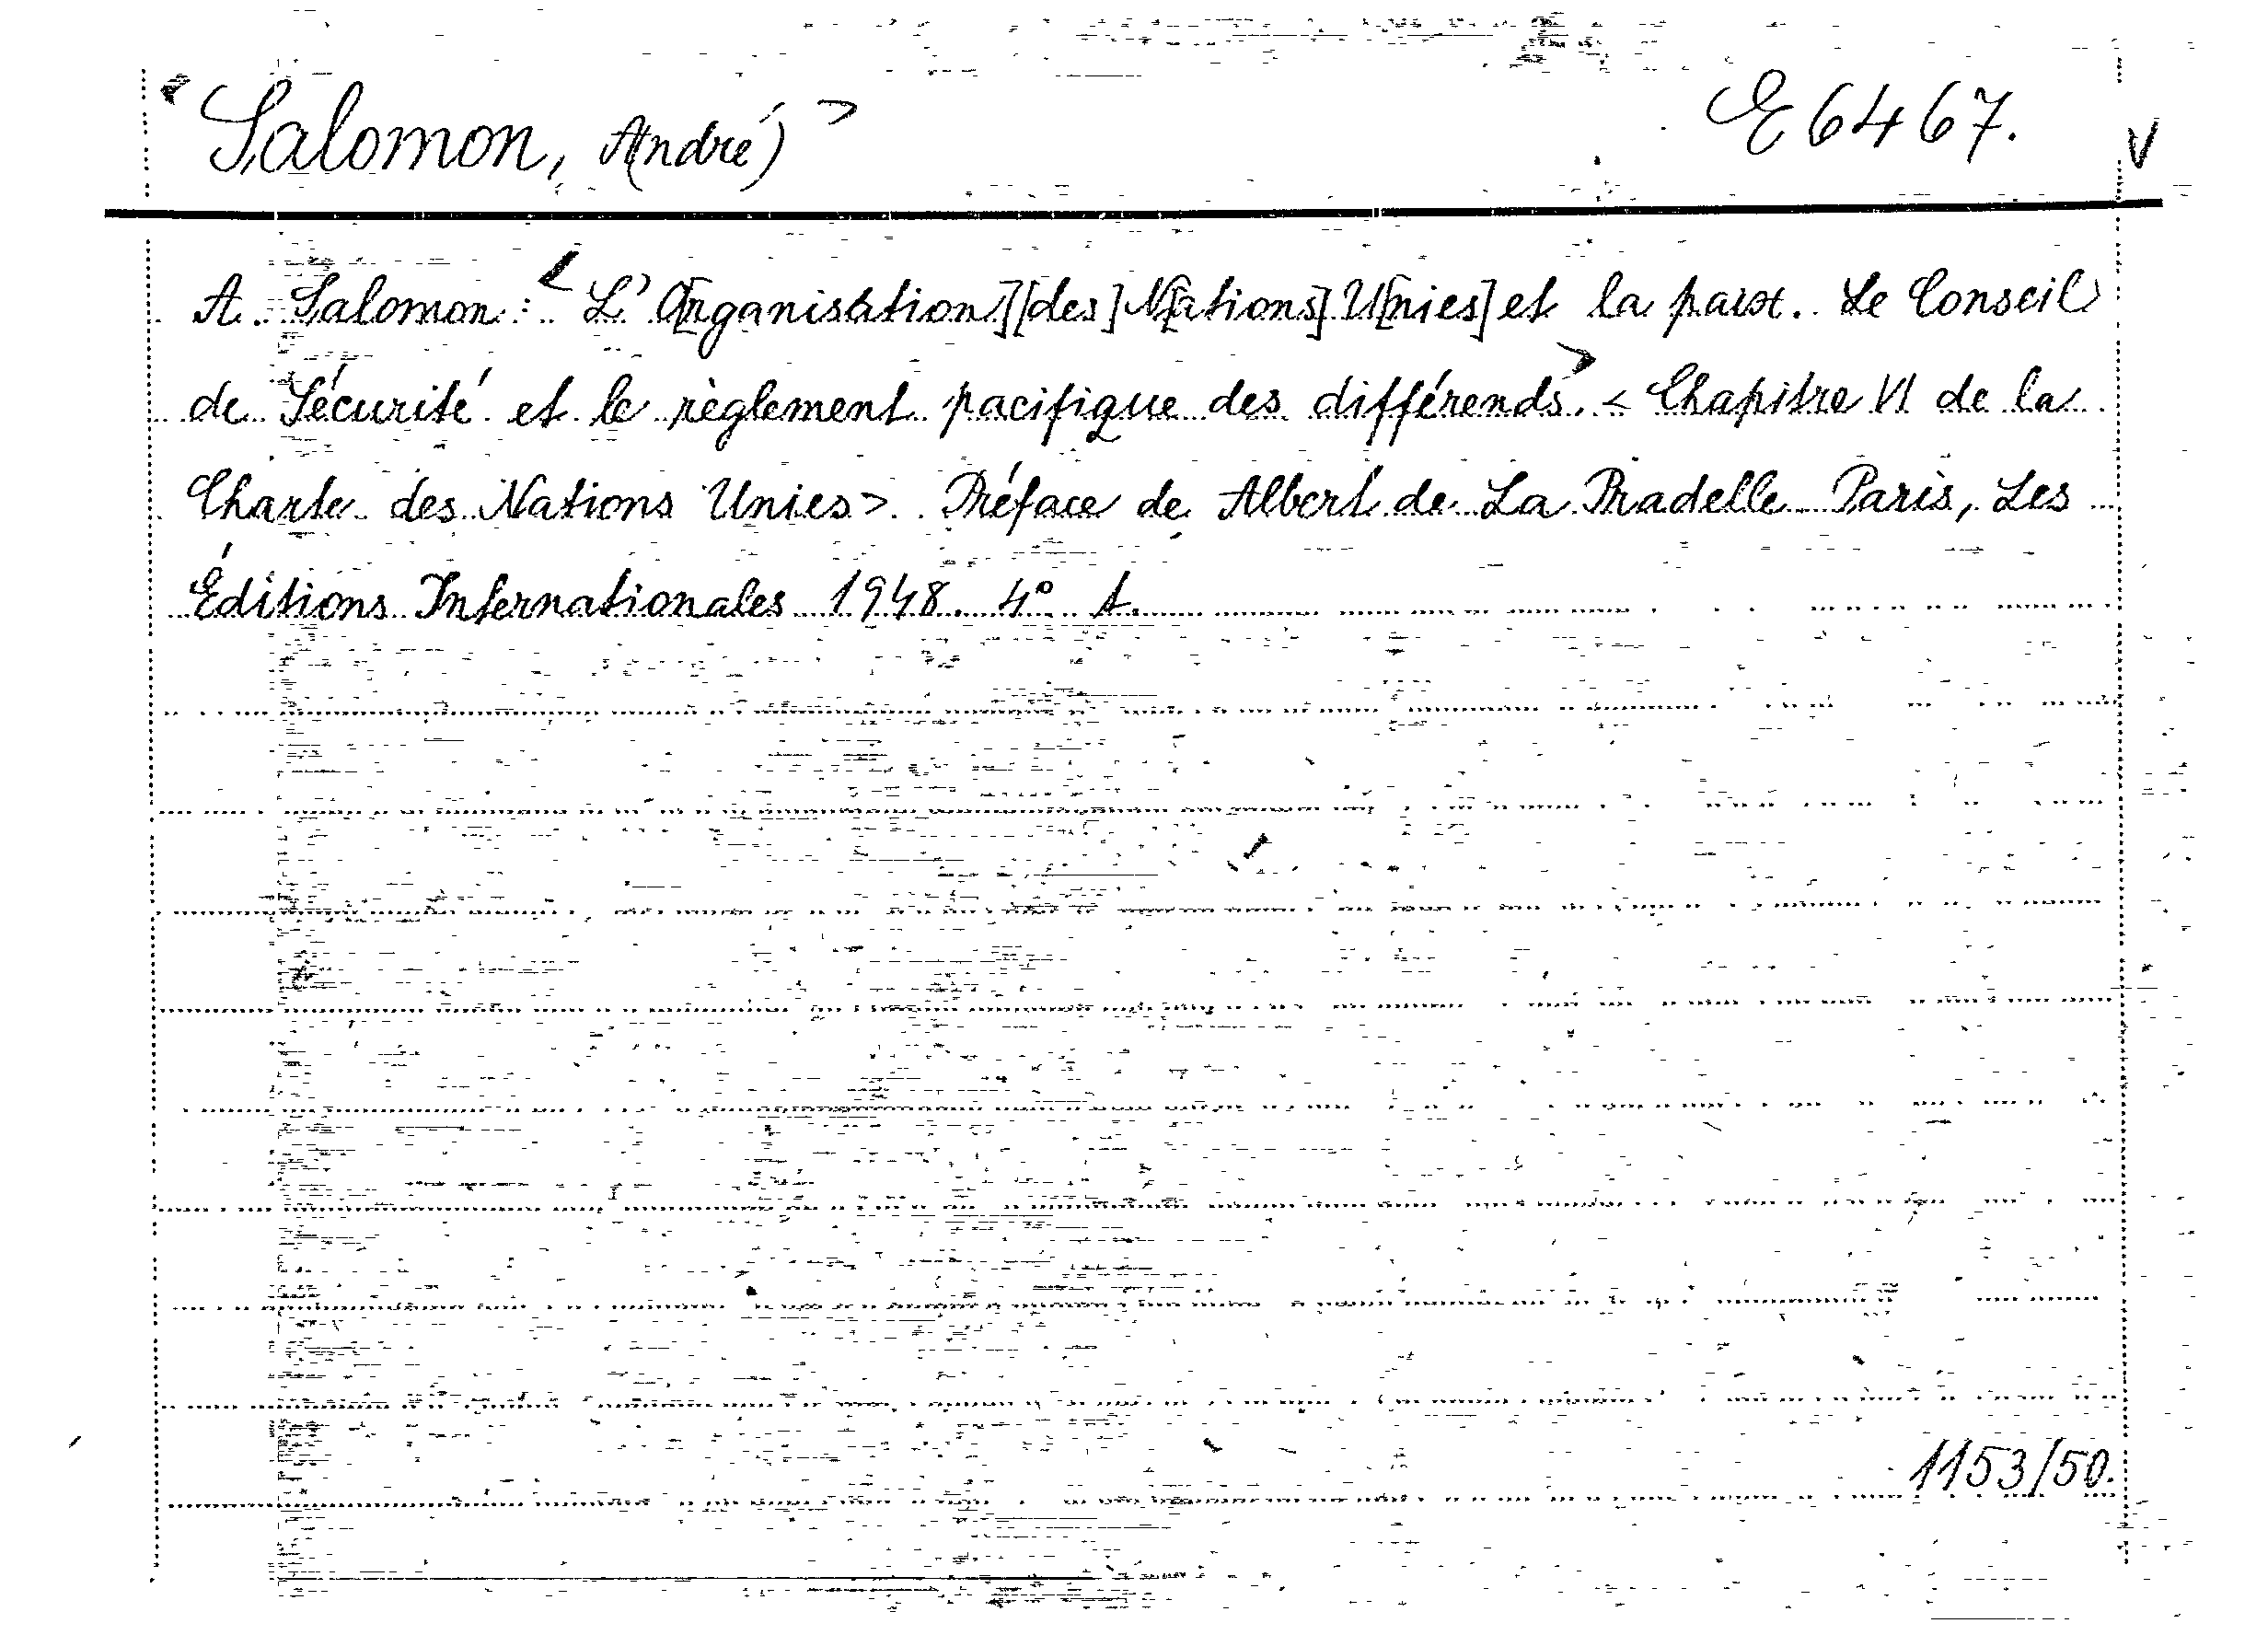 <Salomon, A(ndré)> E 6467. V
A. Salomon: <L'O[rganisation] [des] N[ations] U[nies] et la paix. Le Conseil
de Sécurité et le règlement pacifique des différends>. < Chapitre VI de la
Charte des Nations Unies>. Préface de Albert de La Pradelle. Paris, Les
Éditions Internationales 1948. 4°
1153/50.